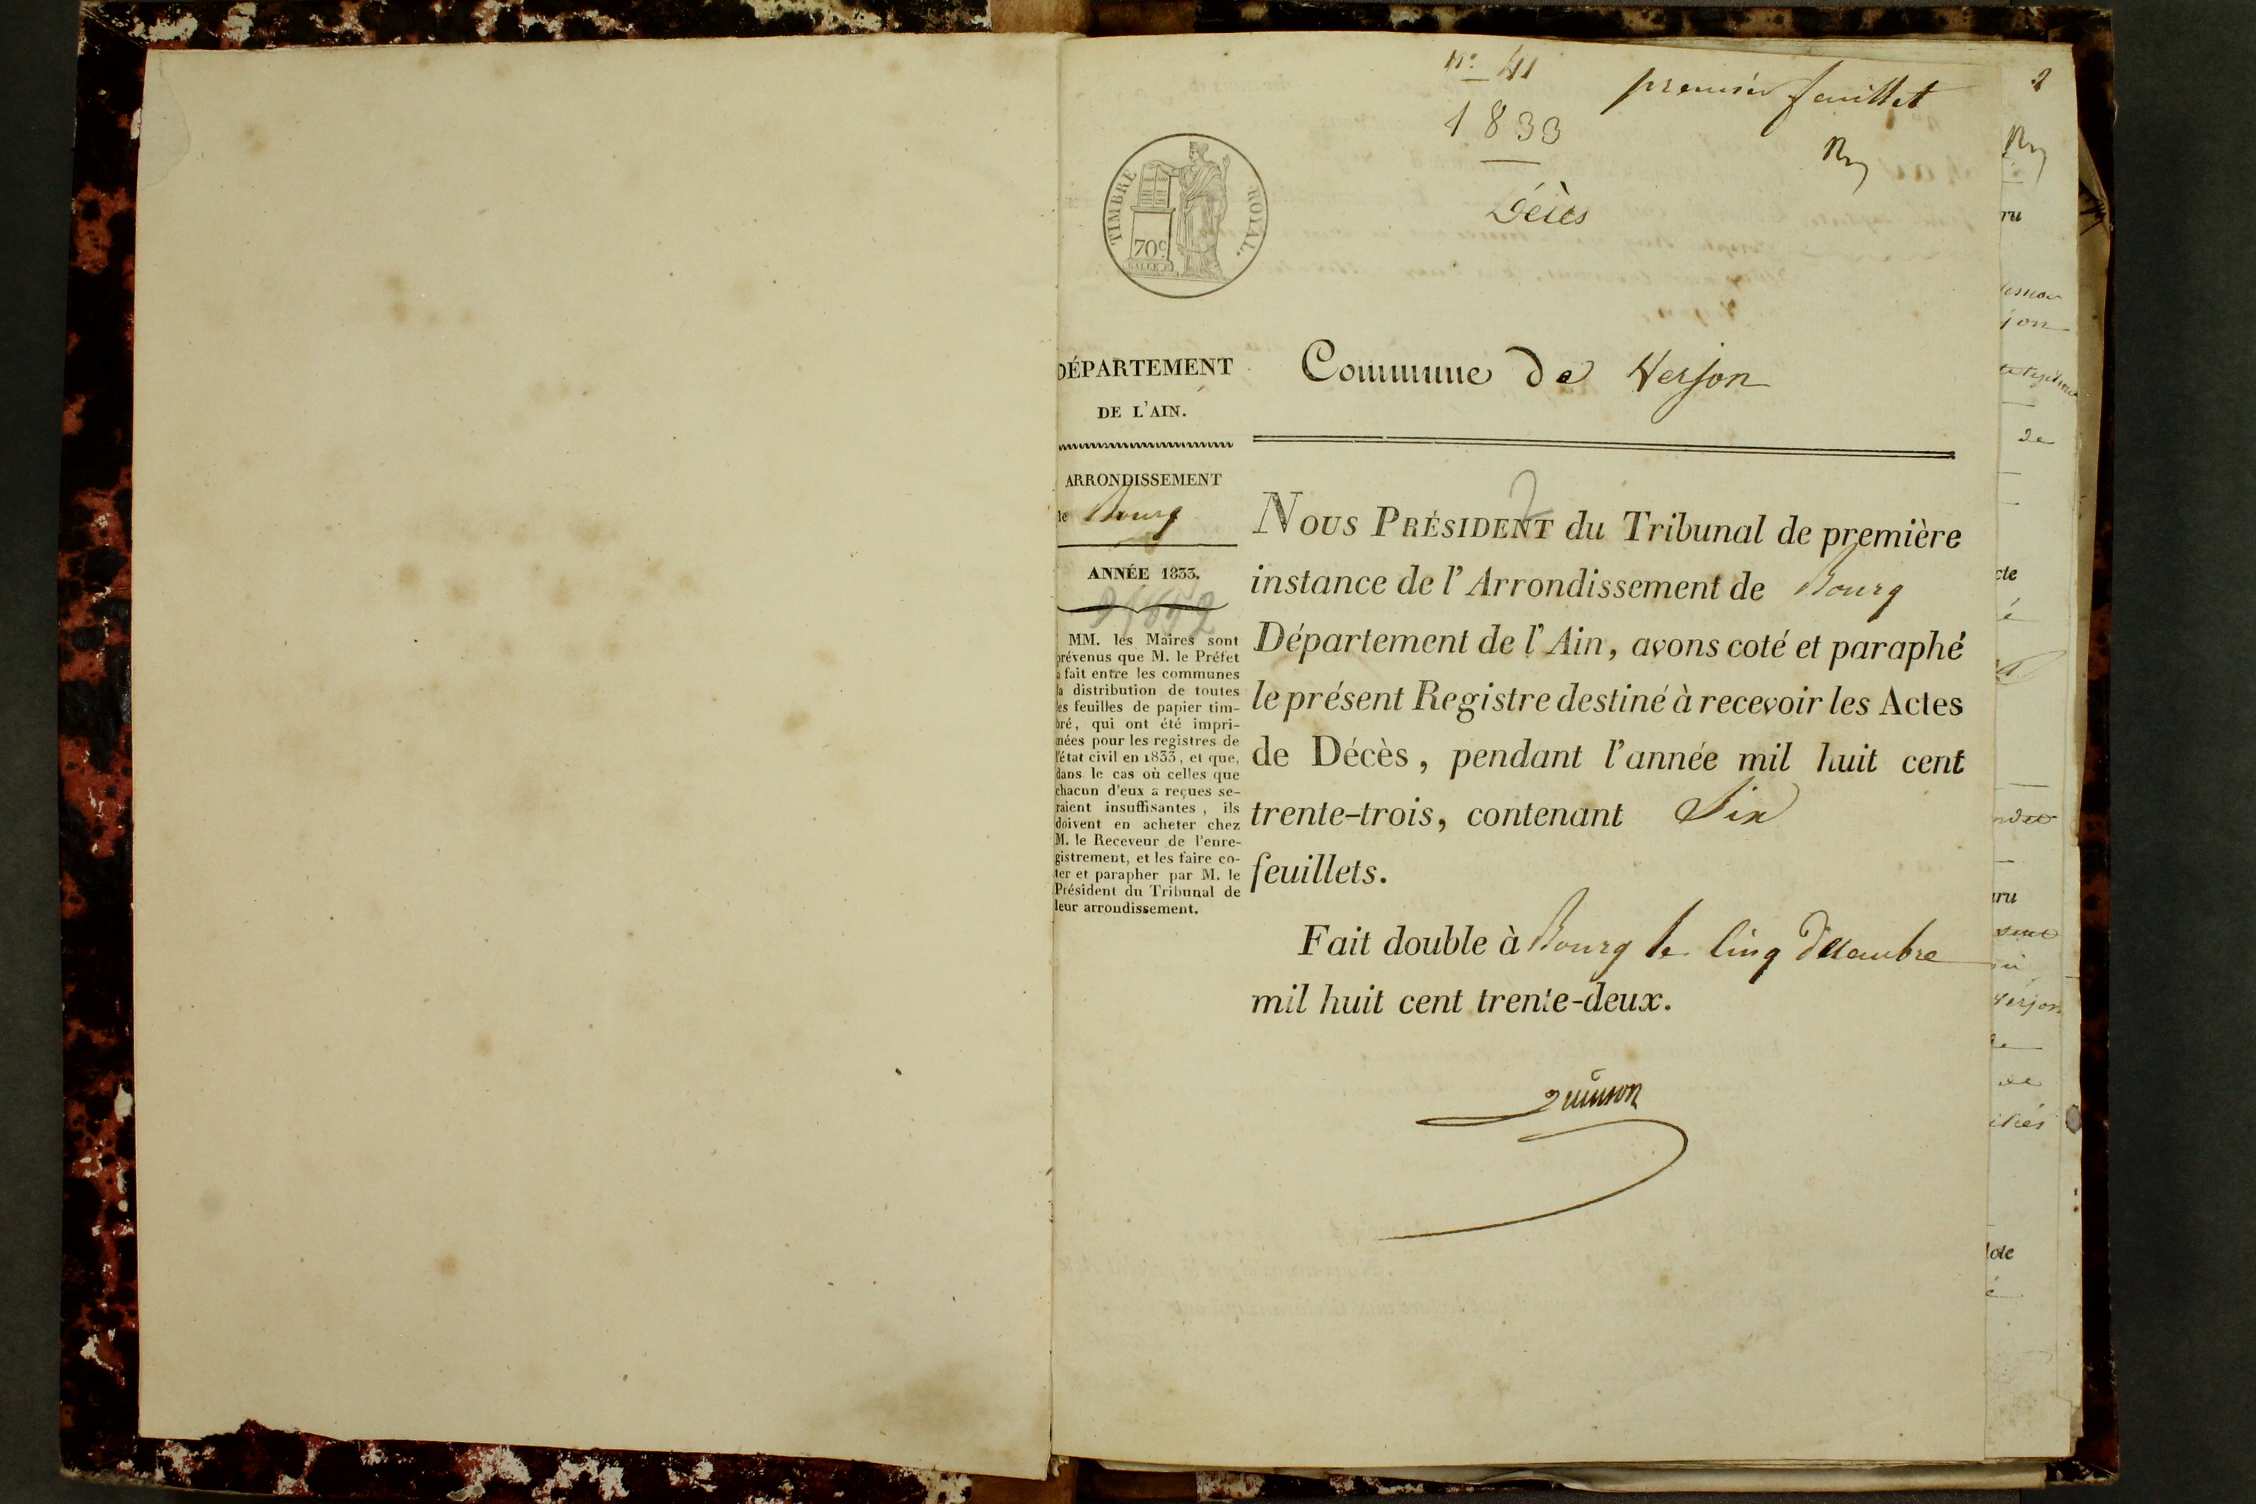 N.º 41
1833
premier feuillet
Décès
TIMBRE ROYAL.
70 c
DÉPARTEMENT
DE L'AIN.
Commune de Verjon
ARRONDISSEMENT
de Bourg
ANNÉE 1833.
MM. les Maires sont
prévenus que M. le Préfet
a fait entre les communes
la distribution de toutes
les feuilles de papier tim-
bré, qui ont été impri-
mées pour les registres de
l'état civil en 1833, et que,
dans le cas où celles que
chacun d'eux a reçues se-
raient insuffisantes, ils
doivent en acheter chez
M. le Receveur de l'enre-
gistrement, et les faire co-
ter et parapher par M. le
Président du Tribunal de
leur arrondissement.
NOUS PRÉSIDENT du Tribunal de première
instance de l'Arrondissement de Bourg
Département de l'Ain, avons coté et paraphé
le présent Registre destiné à recevoir les Actes
de Décès, pendant l'année mil huit cent
trente-trois, contenant Six
feuillets.
Fait double à Bourg le Cinq Décembre
mil huit cent trente-deux.
Quinson
2
ru
jon
de
cte
é
Verjon
de